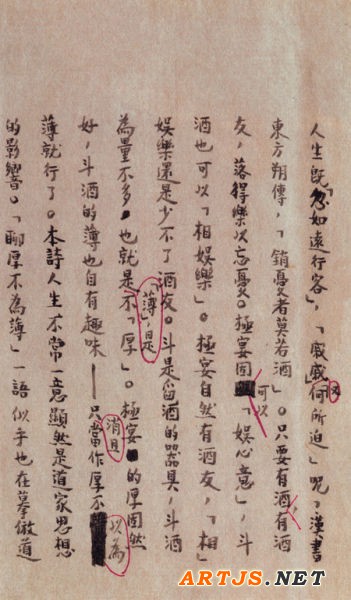 人生既「忽如遠行客」,「戚戚又何所迫」呢?漢書
東方朔傳,「銷憂者莫若酒」。只要有酒,有酒
友,落得樂以忘憂。極宴固可以「娛心意」,斗
酒也可以「相娛樂」。極宴自然有酒友,「相」
娛樂還是少不了酒友。斗是舀酒的器具,斗酒
為量不多。也就是「薄」,是不「厚」。極宴的厚固然
好,斗酒的薄也自有趣味——只消且當作厚不以為
薄就行了。本詩人生不常一意顯然是道家思想
的影響。「聊厚不為薄」一語似乎也在摹倣道
ARTJS.NET